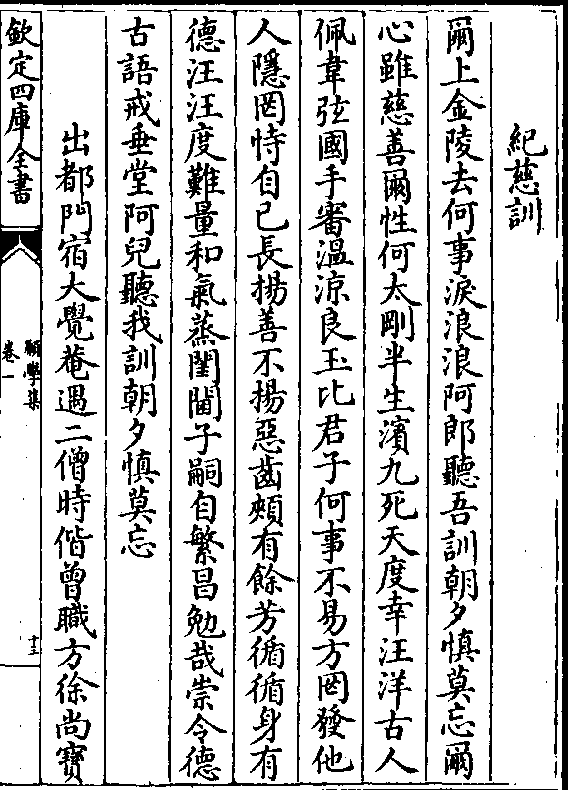 紀慈訓
爾上金陵去何事淚浪浪阿郎聽吾訓朝夕慎莫忘爾
心雖慈善爾性何太剛半生濱九死天度幸汪洋古人
佩韋弦國手審溫涼良玉比君子何事不易方罔發他
人隱罔恃自己長揚善不揚惡齒頰有餘芳循循身有
德汪汪度難量和氣蒸閨閫子嗣自繁昌勉哉崇令德
古語戒垂堂阿兒聽我訓朝夕慎莫忘
出都門宿大覺菴遇二僧時偕曾職方徐尚寶
欽定四庫全書
願學集
卷一
十三